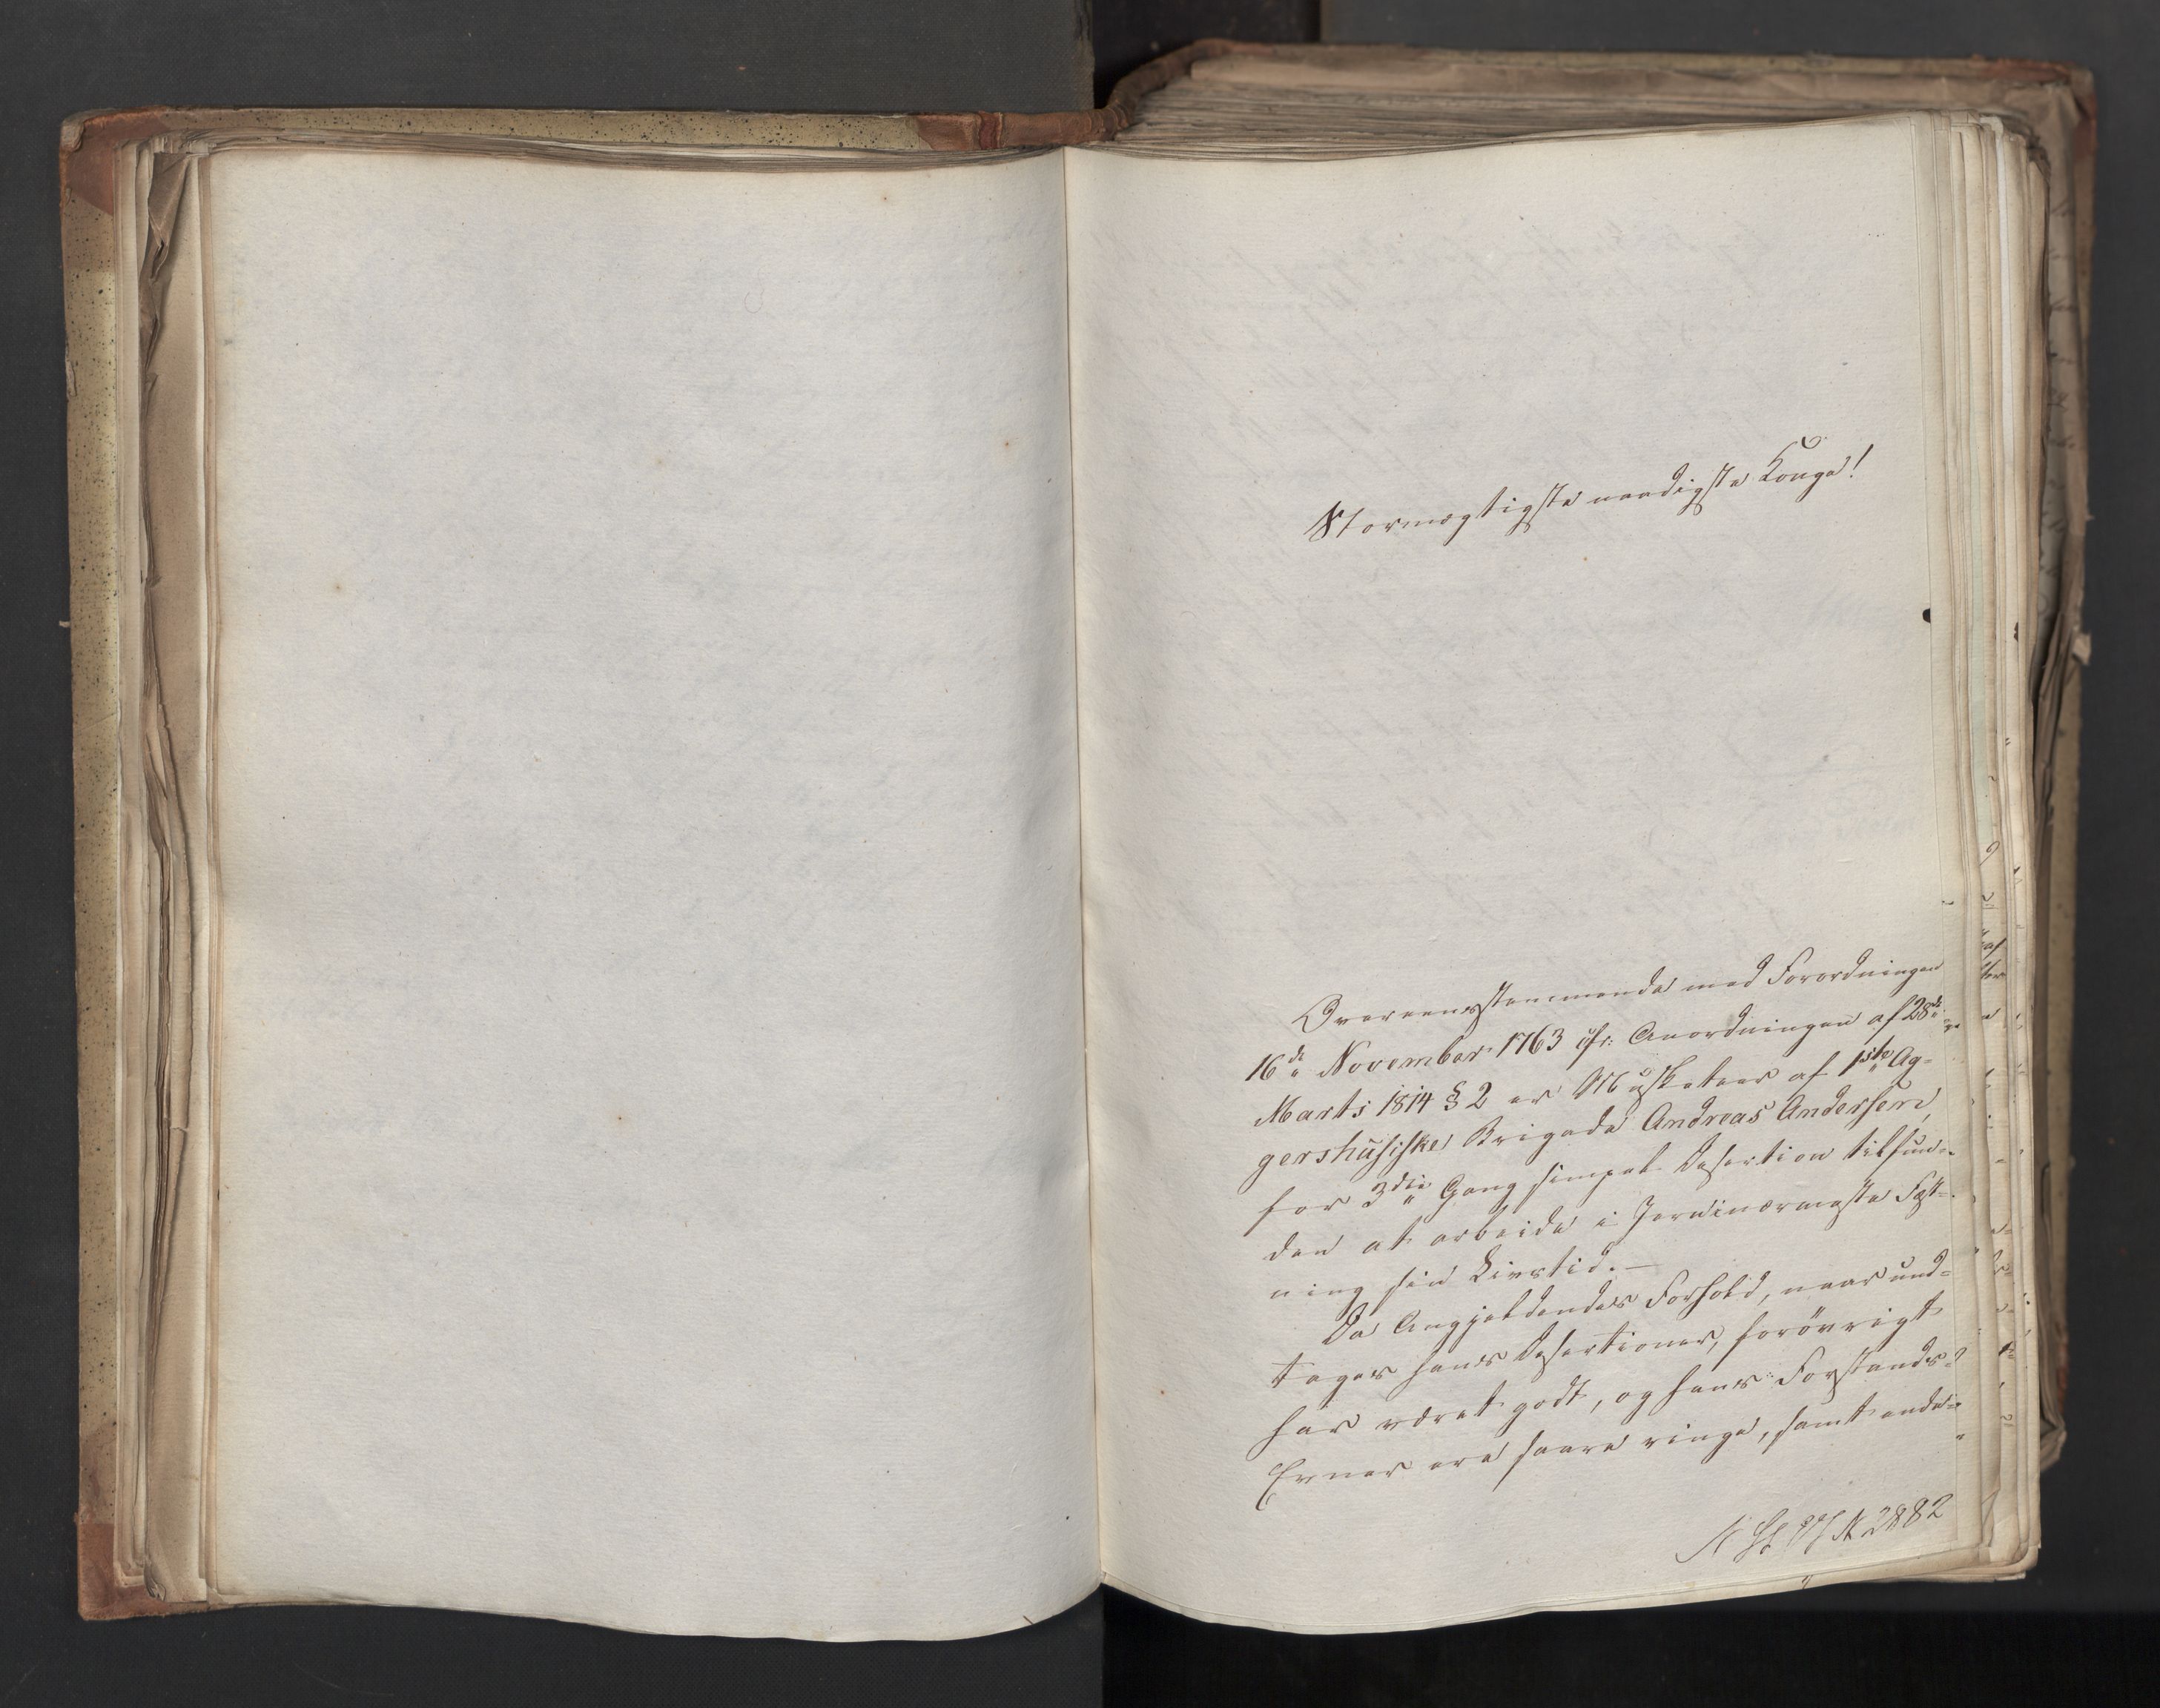 Stormægtigste naadigste Konge!
Overeensstemmende med Forordningen
16de November 1763 cfr: Anordningen af 28de
Marts 1814 § 2 er Musketeer af 1ste Ag-
gershuusiske Brigade Andreas Andersen,
for 3die Gang simpel Desertion tilfun-
den at arbeide i Jern i nærmeste Fæst-
ning sin Livstid. —
Da Angjeldendes Forhold, naar und-
tages hans Desertioner, forövrigt
har været godt, og hans Forstands-
Evner ere saare ringe, samt ende-
2882